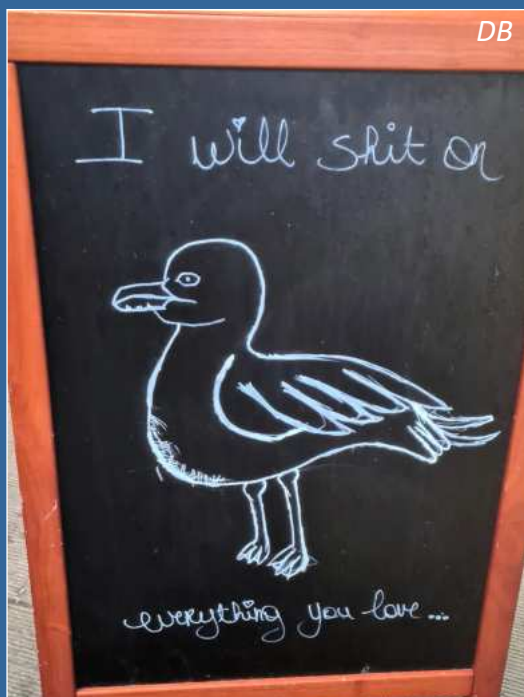 DB
I will shit on
everything you love...